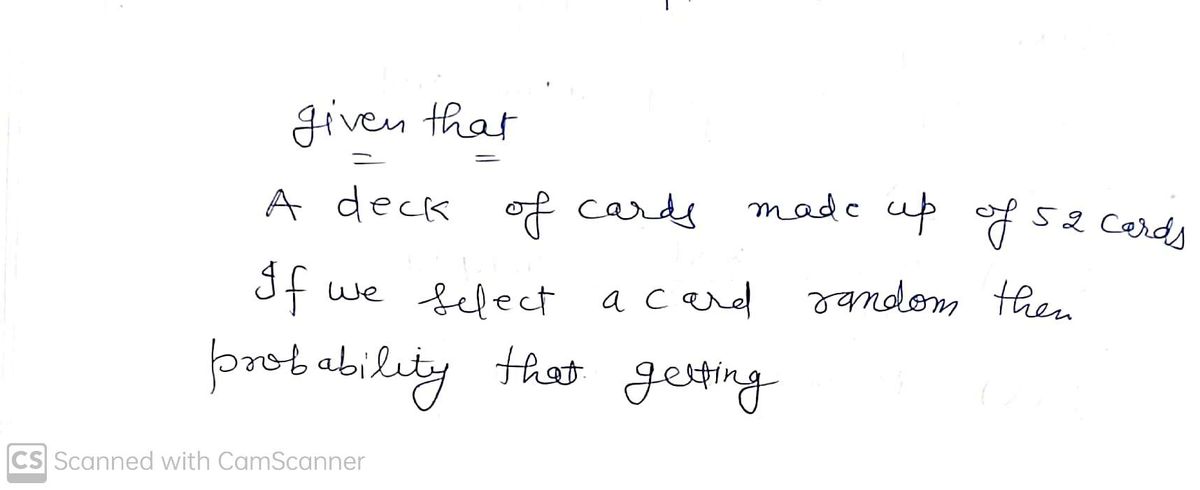 given that
A deck of cards made up of 52 cards
If we select a card random then
probability that getting
CS Scanned with CamScanner